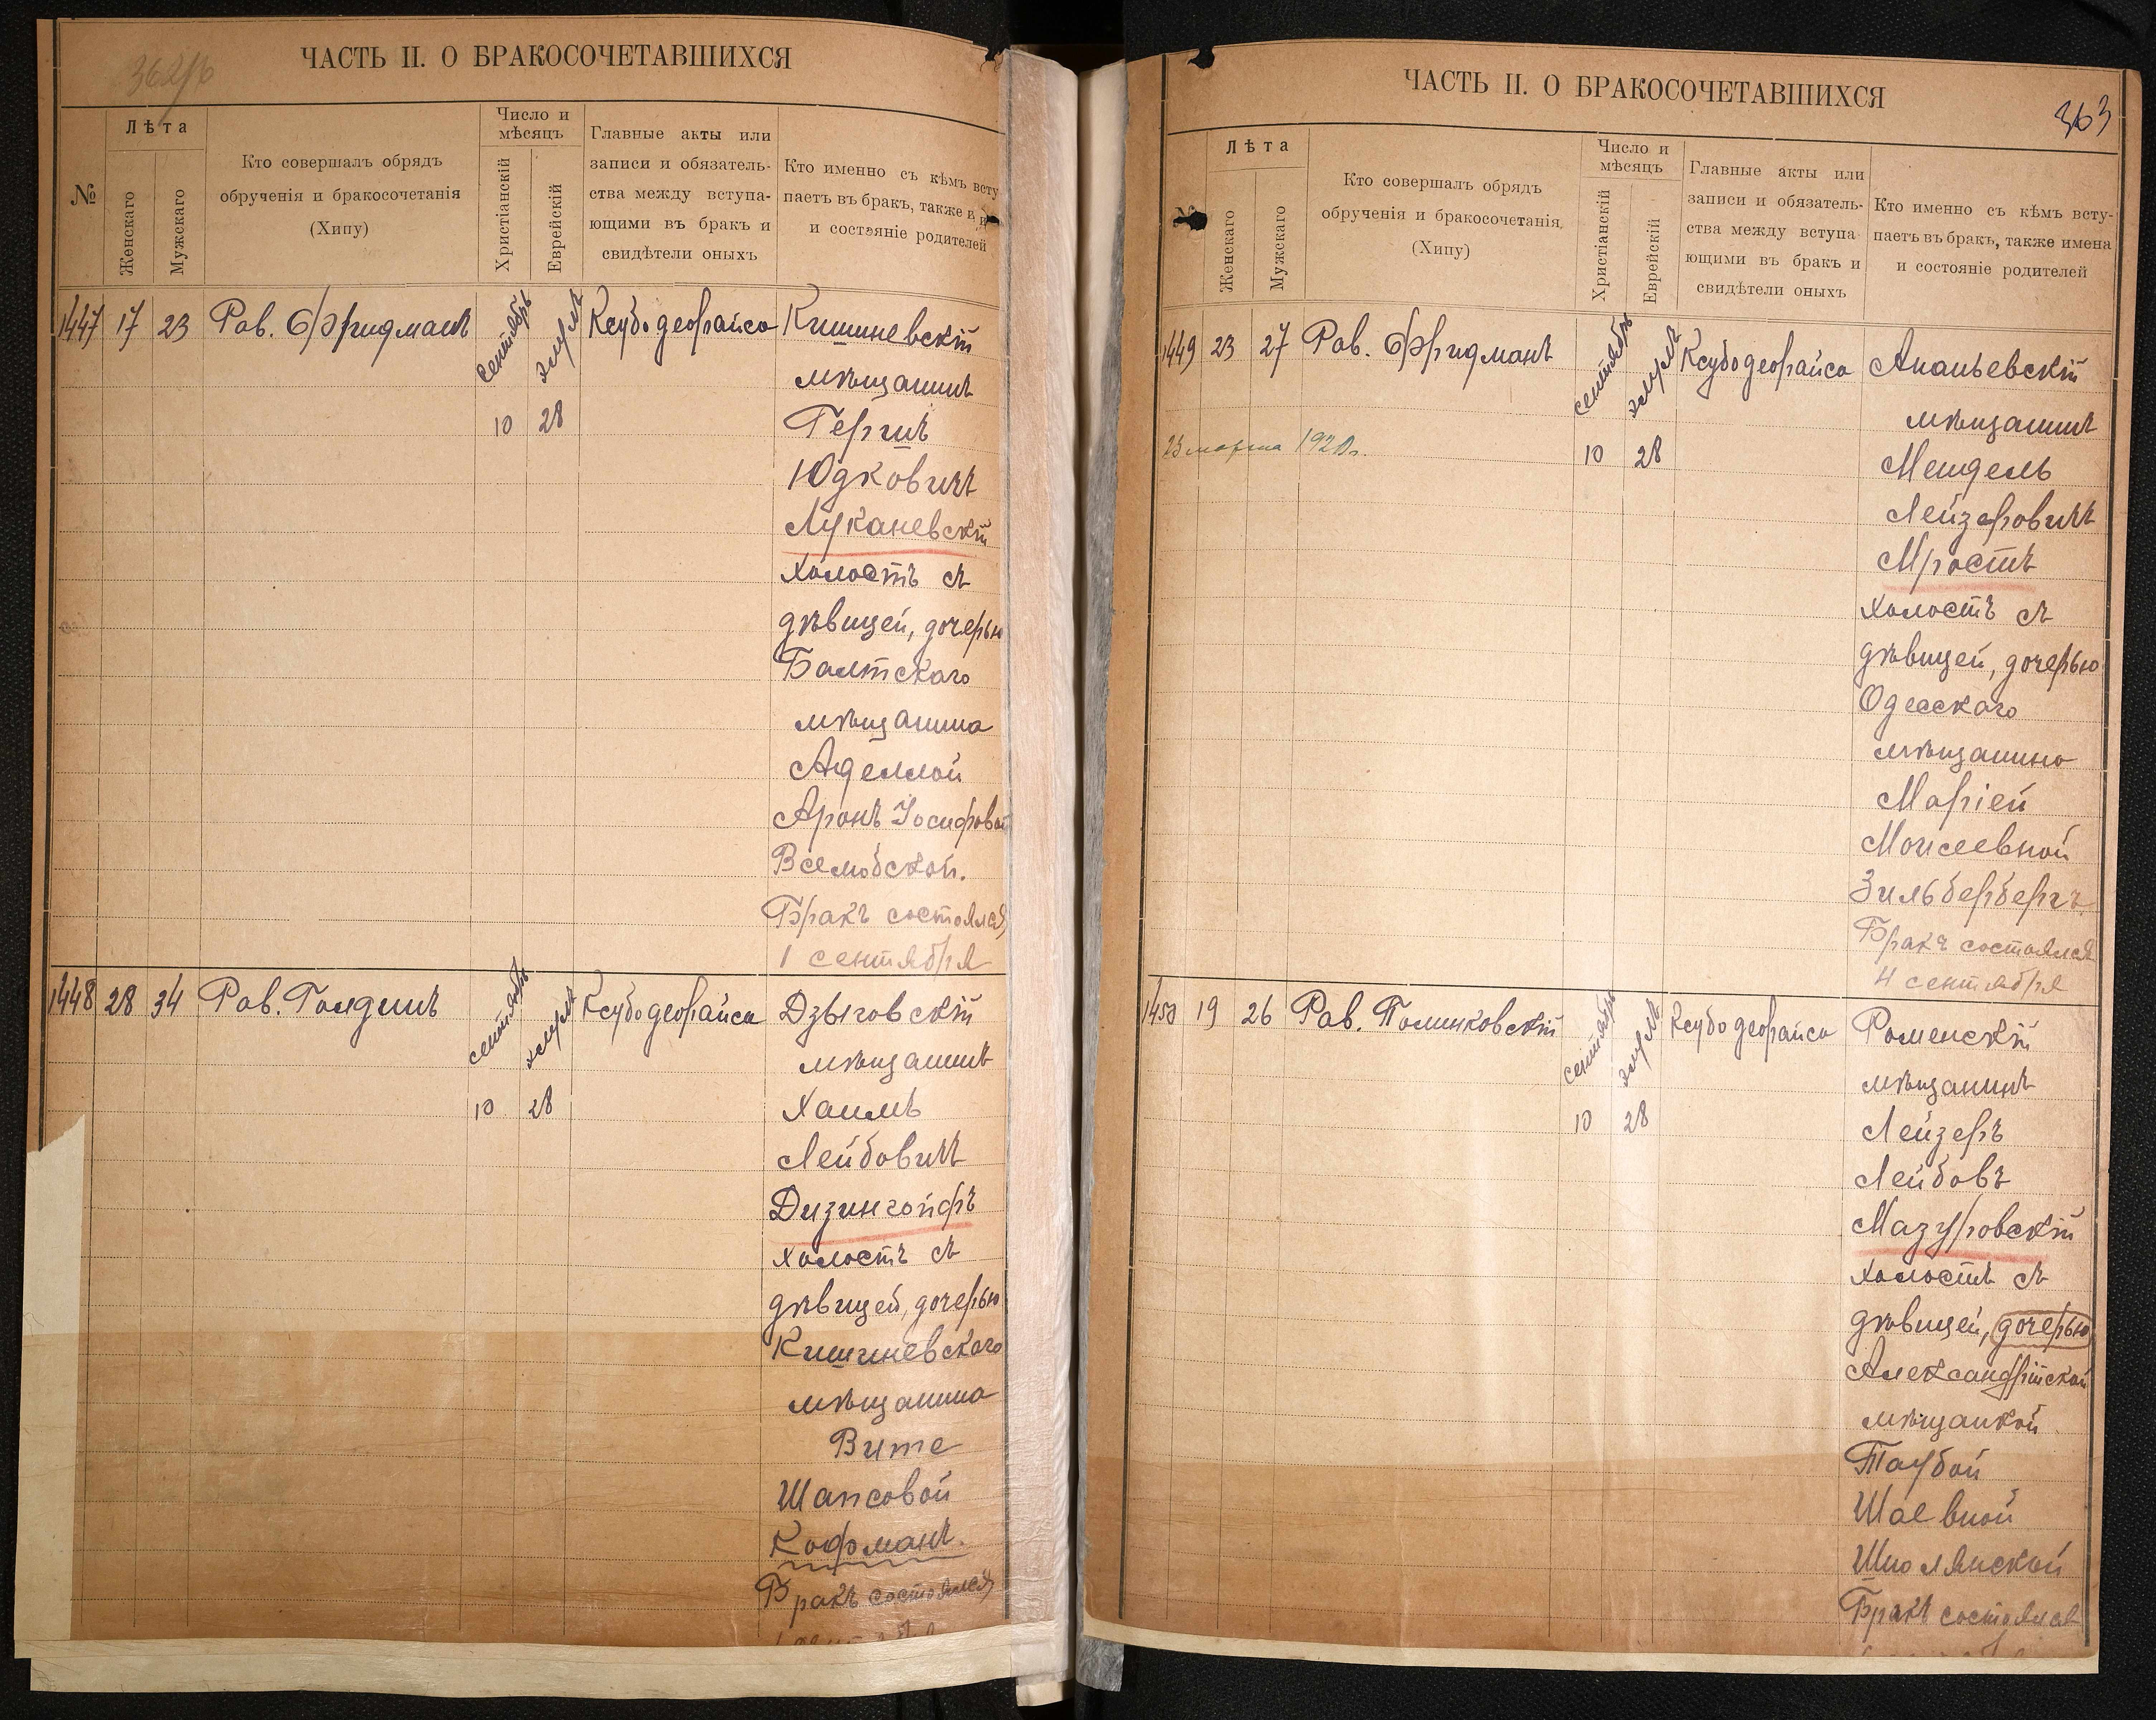 362/b
ЧАСТЬ II. О БРАКОСОЧЕТАВШИХСЯ
№
Лѣта
Женскаго
Мужскаго
Кто совершалъ обрядъ
обрученія и бракосочетанія
(Хипу)
Число и
мѣсяцъ
Христіанскій
Еврейскій
Главные акты или
записи и обязатель-
ства между вступа-
ющими въ бракъ и
свидѣтели оныхъ
Кто именно съ кѣмъ всту
паетъ въ бракъ, также и
и состояніе родителей
1447 17 23 Рав. Фридманъ сентябрь элулъ Ксубо деорайсо Кишиневскій
мѣщанинъ
10 28 Гершъ
Юдковичъ
Луканевскій
холостъ съ
дѣвицей, дочерью
Балтскаго
мѣщанина
Аделлой
Аронъ Іосифовой
Вселюбской.
Бракъ состоялся
1 сентября
1448 28 34 Рав. Гандшъ сентябрь элулъ Ксубо деорайсо Дзыговскій
мѣщанинъ
10 28 Хаимъ
Лейбовичъ
Дизингойфъ
холостъ съ
дѣвицей, дочерью
Кишиневскаго
мѣщанина
Вите
Шапсовой
Кофманъ.
Бракъ состоялся
ЧАСТЬ II. О БРАКОСОЧЕТАВШИХСЯ
363
Лѣта
Женскаго
Мужскаго
Кто совершалъ обрядъ
обрученія и бракосочетанія
(Хипу)
Число и
мѣсяцъ
Христіанскій
Еврейскій
Главные акты или
записи и обязатель-
ства между вступа
ющими въ бракъ и
свидѣтели оныхъ
Кто именно съ кѣмъ всту-
паетъ въ бракъ, также имена
и состояніе родителей
1449 23 27 Рав. Фридманъ сентябрь элулъ Ксубо деорайсо Ананьевскій
мѣщанинъ
23 марта 1920 г. 10 28 Мендель
Лейзеровичъ
Мростъ
холостъ съ
дѣвицей, дочерью
Одесскаго
мѣщанина
Маріей
Моисеевной
Зильбербергъ.
Бракъ состоялся
4 сентября
1450 19 26 Рав. Полинковскій сентябрь элулъ Ксубо деорайсо Роменскій
мѣщанинъ
10 28 Лейзеръ
Лейбовъ
Мазуровскій
холостъ съ
дѣвицей, дочерью
Александрійской
мѣщанкой
Таубой
Шаевной
Шполянской
Бракъ состоялся